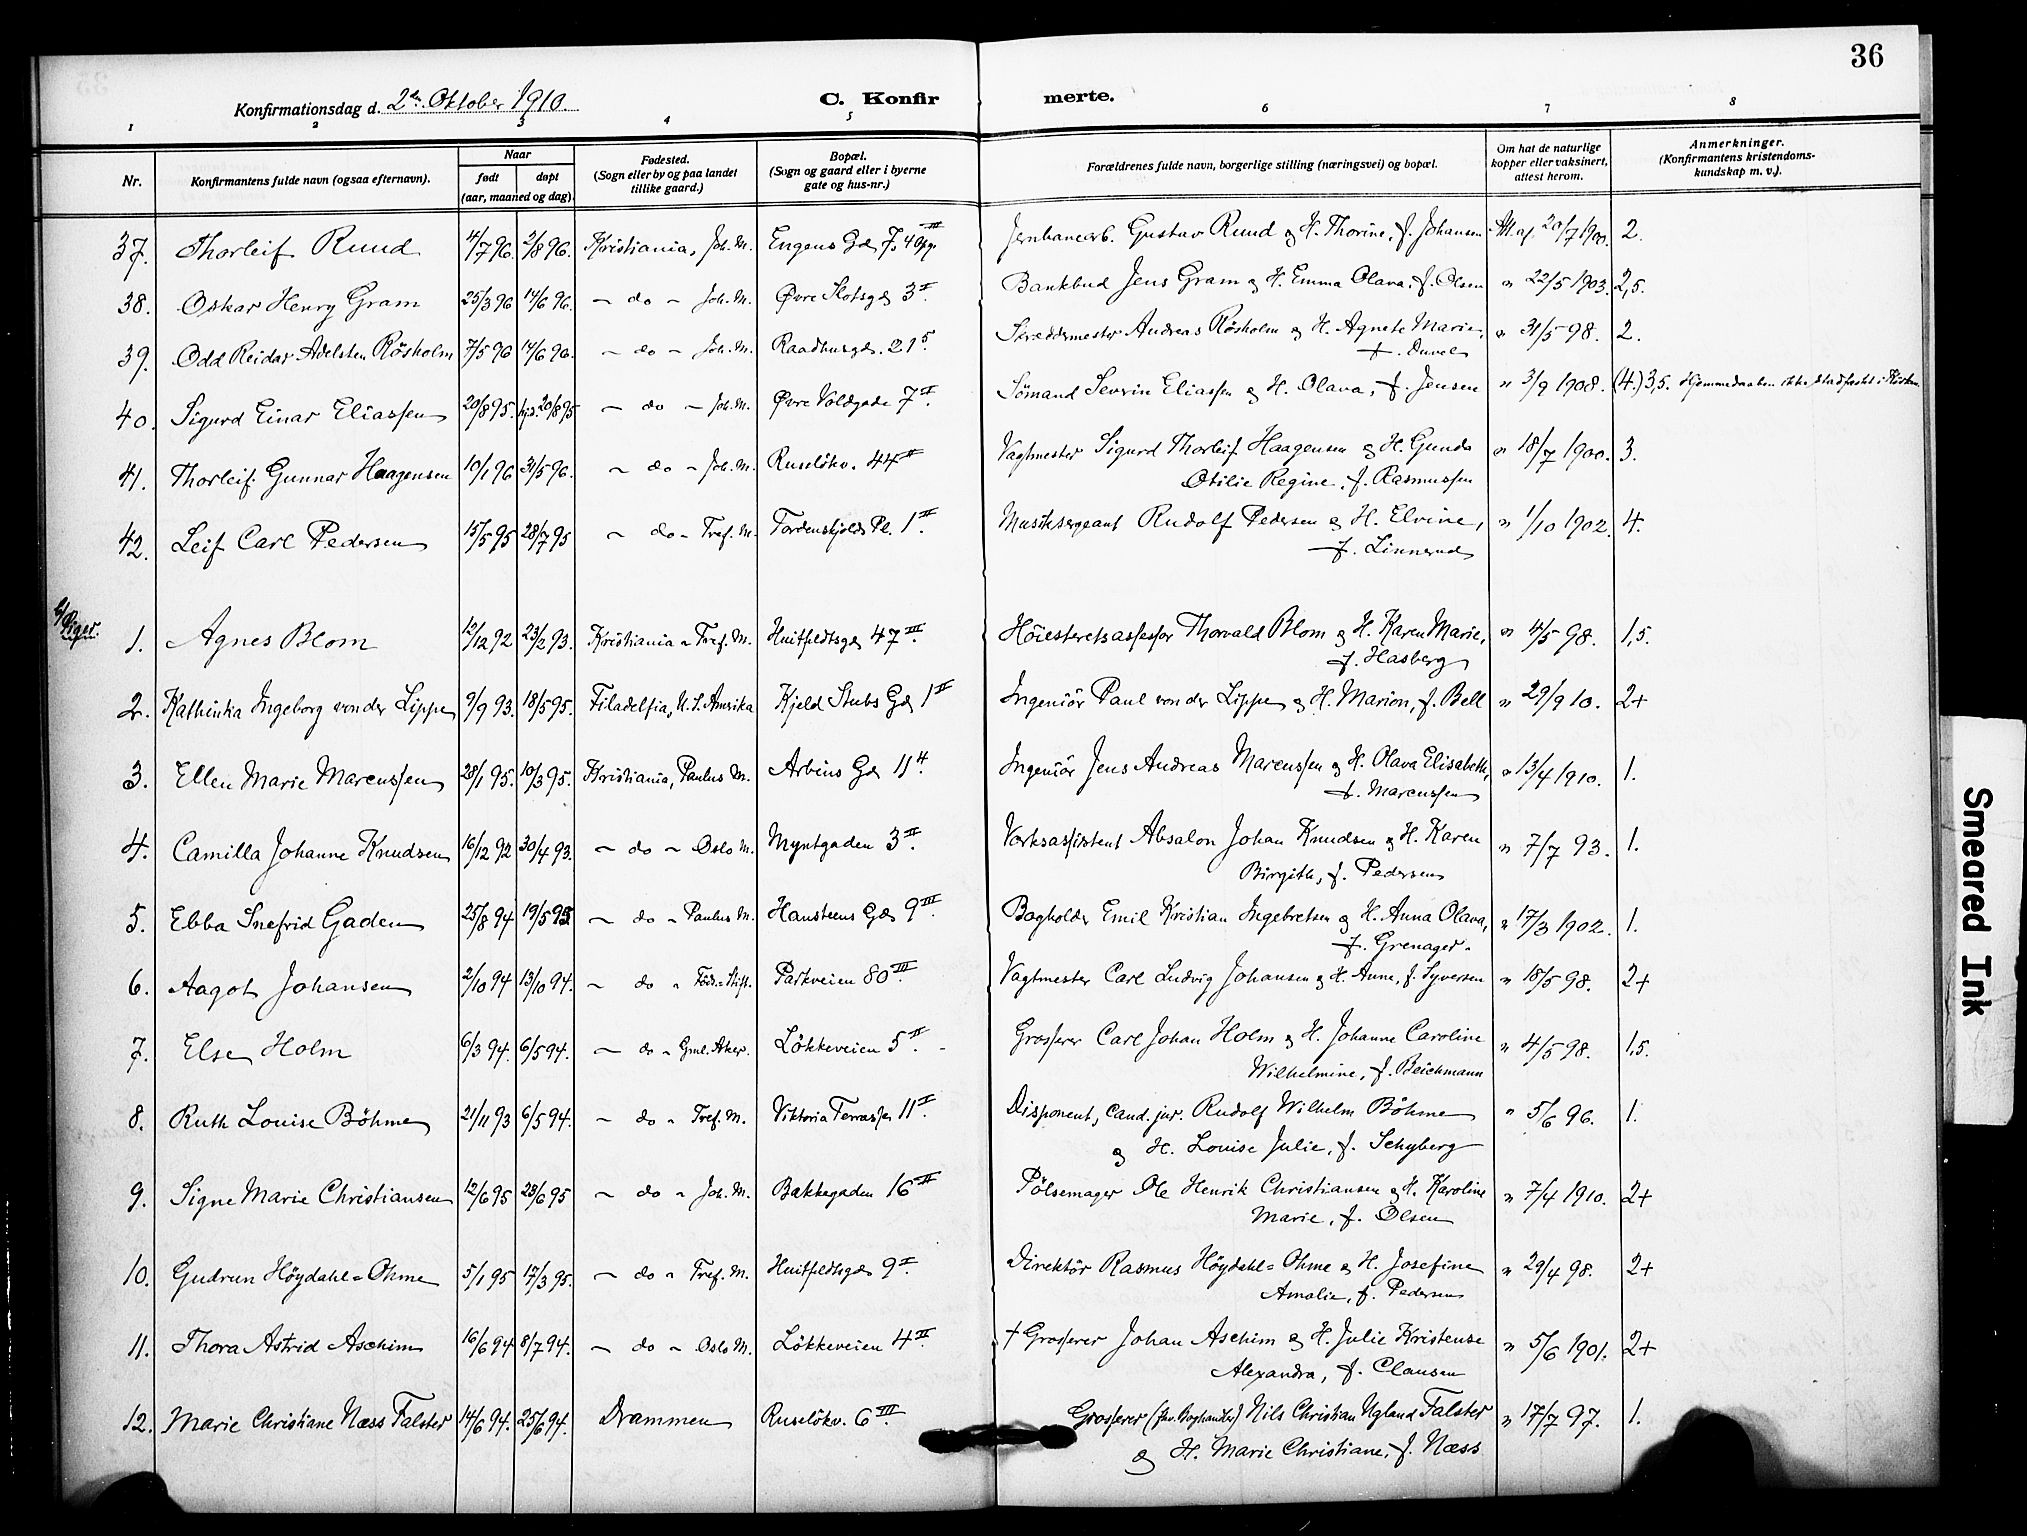 36
Konfirmationsdag d. 2den Oktober 1910.
C. Konfirmerte.
1 2 3 4 5 6 7 8
Nr. Konfirmantens fulde navn (ogsaa efternavn). Naar født døpt (aar, maaned og dag). Fødested. (Sogn eller by og paa landet tillike gaard.) Bopæl. (Sogn og gaard eller i byerne gate og hus-nr.) Forældrenes fulde navn, borgerlige stilling (næringsvei) og bopæl. Om hat de naturlige kopper eller vaksinert, attest herom. Anmerkninger. (Konfirmantens kristendomskundskap m. v.).
37. Thorleif Ruud 4/7 96. 2/8 96. Kristiania, Joh. M. Engens Gd 7. III Jernbanearb. Gustav Ruud & H. Thorine, f. Johansen Att. af 20/7 1900. 2.
38. Oskar Henry Gram 25/3 96 14/6 96. - do - Joh. M. Øvre Slotsgd 3 II. Bankbud Jens Gram & H. Emma Olava, f. Olsen " 22/5 1903. 2,5.
39. Odd Reidar Adelsten Rösholm 7/5 96 14/6 96. - do - Joh. M. Raadhusgd. 21 5. Skreddermester Andreas Rösholm & H. Agnete Marie, " 31/5 98. 2.
f. Duvel
40. Sigurd Einar Eliassen 20/8 95. hjd. 20/8 95 - do - Joh. M. Øvre Voldgade 7 II. Sömand Severin Eliassen & H. Olava, f. Jensen " 3/9 1908. (4.) 3,5. Hjemmedaaben ikke stadfæstet i Kirken.
41. Thorleif Gunnar Haagensen 10/1 96 31/5 96. - do - Joh. M. Ruselökv. 44 II Vagtmester Sigurd Thorleif Haagensen & H. Gunda " 18/7 1900. 3.
Otilie Regine, f. Rasmussen
42. Leif Carl Pedersen 15/5 95 28/7 95 - do - Tref. M. Tordenskjolds Pl. 1 II. Musiksergeant Rudolf Pedersen & H. Elvine, " 1/10 1902. 4.
f. Linnerud
b/ Piger.
1. Agnes Blom 12/12 92 23/2 93. Kristiania - Tref. M. Huitfeldtsgd 47 III. Höiesteretsassessor Thorvald Blom & H. Karen Marie, " 4/5 98. 1,5.
f. Hasberg
2. Kathinka Ingeborg von der Lippe 9/9 93. 18/5 95. Filadelfia, N. S. Amerika Kjeld Stubs Gd 1 II Ingeniör Paul von der Lippe & H. Marion, f. Bell " 29/9 10. 2+
3. Ellen Marie Marcussen 28/1 95. 10/3 95. Kristiania, Paulus M. Arbins Gd 11 4. Ingeniör Jens Andreas Marcussen & H. Olava Elisabeth, " 13/4 1910. 1.
f. Marcussen
4. Camilla Johanne Knudsen 16/12 92 30/4 93. - do - Oslo M. Myntgaden 3 II. Værksassistent Absalon Johan Knudsen & H. Karen " 7/7 93. 1.
Birgith, f. Pedersen
5. Ebba Snefrid Gaden 25/8 94 19/5 95 - do - Paulus M. Hansteens Gd 9 III. Bogholder Emil Kristian Ingebretsen & H. Anna Olava, " 17/3 1902. 1.
f. Grenager.
6. Aagot Johansen 2/10 94 13/10 94. - do - Föds. Stift. Parkveien 80 III. Vagtmester Carl Ludvig Johansen & H. Anne, f. Syversen " 18/5 98. 2+
7. Else Holm 6/3 94. 6/5 94. - do - Gml. Aker. Lökkeveien 5 II. Grosserer Carl Johan Holm & H. Johanne Caroline " 4/5 98. 1,5.
Wilhelmine, f. Beichmann
8. Ruth Louise Böhme 21/11 93 6/5 94. - do - Tref. M. Viktoria Terrasse 11 I. Disponent, Cand. jur. Rudolf Wilhelm Böhme " 5/6 96. 1.
& H. Louise Julie, f. Schyberg
9. Signe Marie Christiansen 12/6 95 23/6 95 - do - Joh. M. Bakkegaden 16 II Pölsemager Ole Henrik Christiansen & H. Karoline " 7/4 1910. 2+
Marie, f. Olsen
10. Gudrun Höydahl-Ohme 5/1 95 17/3 95. - do - Tref. M. Huitfeldtsgd 9 I. Direktör Rasmus Höydahl-Ohme & H. Josefine " 29/4 98. 2+
Amalie, f. Pedersen
11. Thora Astrid Aschim 16/6 94 8/7 94. - do - Oslo M. Lökkeveien 4 II † Grosserer Johan Aschim & H. Julie Kristense " 5/6 1901. 2+
Alexandra, f. Clausen
12. Marie Christiane Næss Falster 14/6 94. 25/6 94. Drammen Ruselökv. 6 III. Grosserer (fhv. Boghandler) Nils Christian Ugland Falster " 17/7 97. 1.
& H. Marie Christiane, f. Næss
Smeared Ink